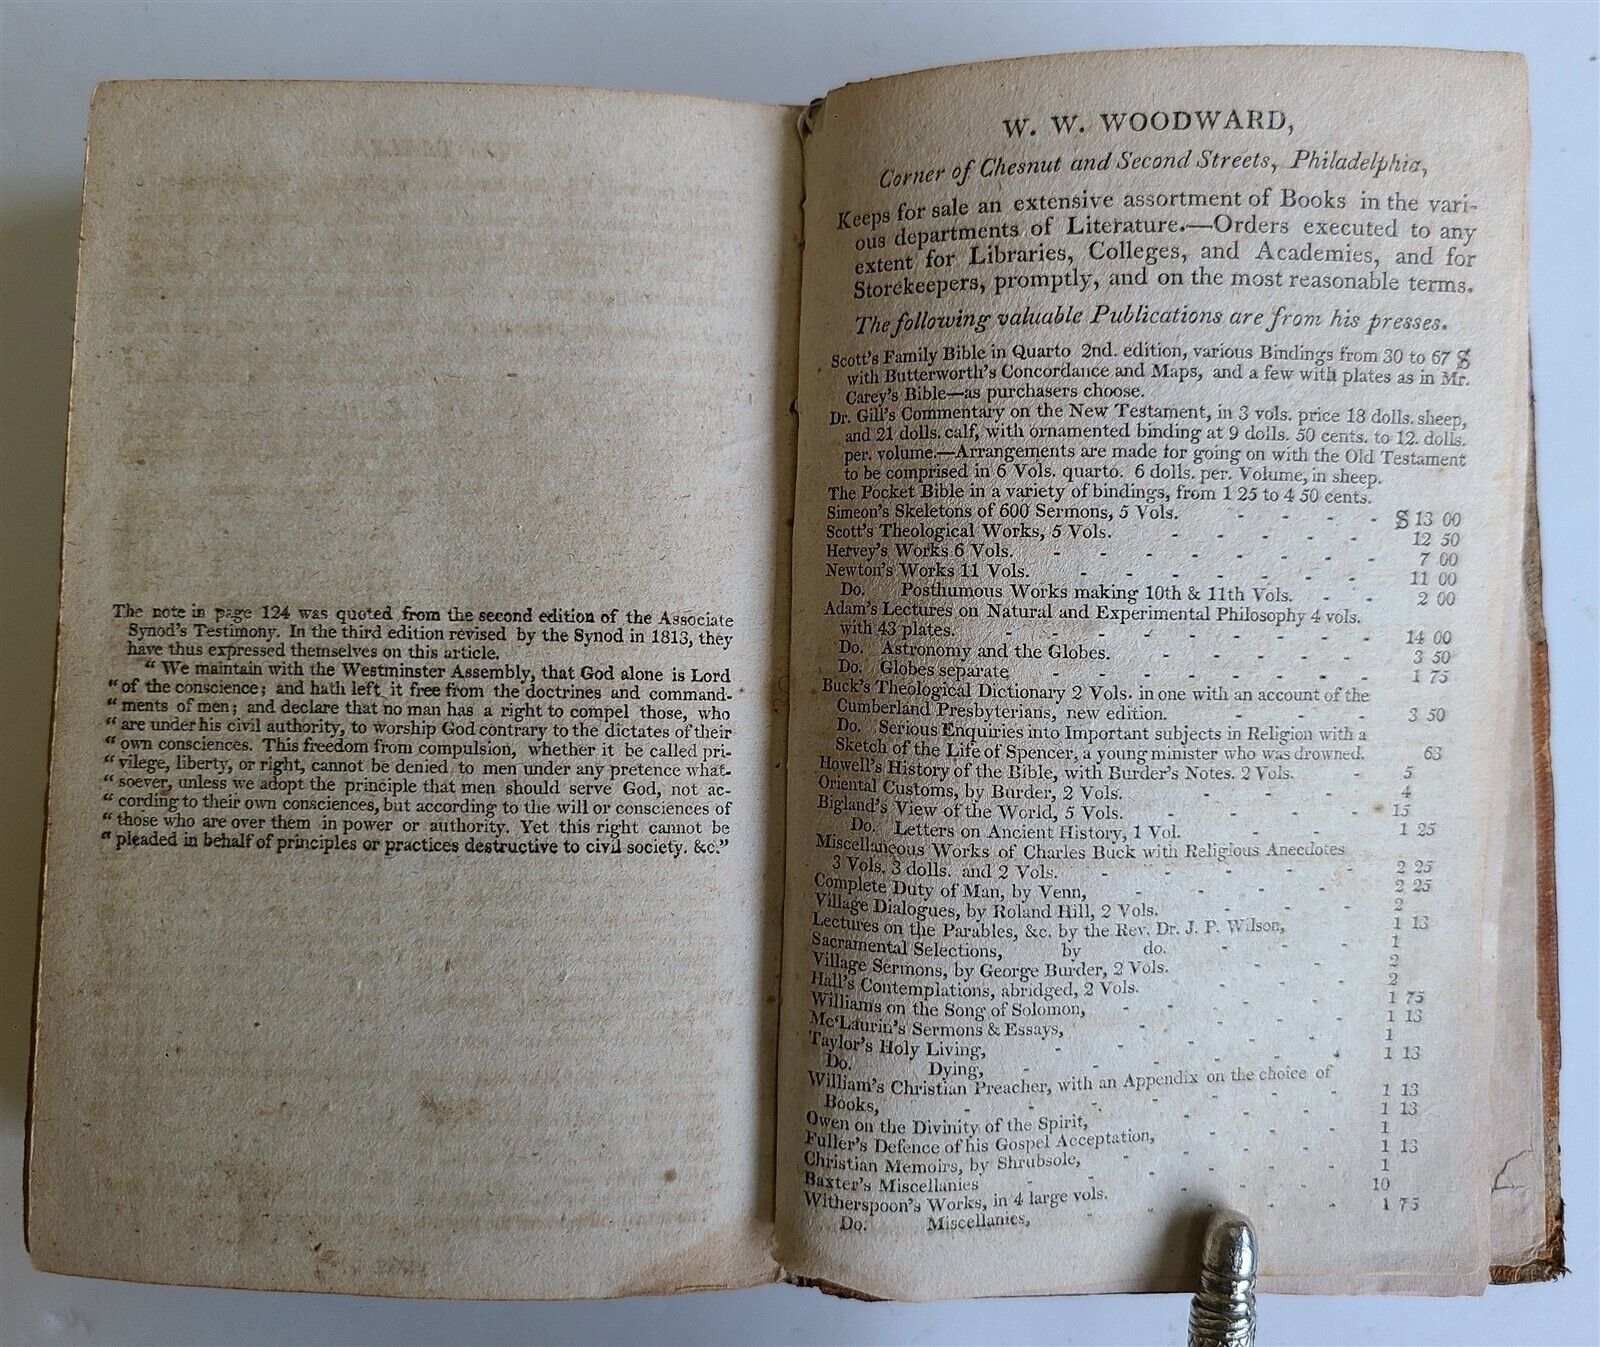 The note in page 124 was quoted from the second edition of the Associate
Synod's Testimony. In the third edition revised by the Synod in 1813, they
have thus expressed themselves on this article.
" We maintain with the Westminster Assembly, that God alone is Lord
" of the conscience; and hath left it free from the doctrines and command-
" ments of men; and declare that no man has a right to compel those, who
" are under his civil authority, to worship God contrary to the dictates of their
" own consciences. This freedom from compulsion, whether it be called pri-
" vilege, liberty, or right, cannot be denied to men under any pretence what-
" soever, unless we adopt the principle that men should serve God, not ac-
" cording to their own consciences, but according to the will or consciences of
" those who are over them in power or authority. Yet this right cannot be
" pleaded in behalf of principles or practices destructive to civil society. &c."
W. W. WOODWARD,
Corner of Chesnut and Second Streets, Philadelphia,
Keeps for sale an extensive assortment of Books in the vari-
ous departments of Literature.—Orders executed to any
extent for Libraries, Colleges, and Academies, and for
Storekeepers, promptly, and on the most reasonable terms.
The following valuable Publications are from his presses.
Scott's Family Bible in Quarto 2nd. edition, various Bindings from 30 to 67 $
with Butterworth's Concordance and Maps, and a few with plates as in Mr.
Carey's Bible—as purchasers choose.
Dr. Gill's Commentary on the New Testament, in 3 vols. price 18 dolls. sheep,
and 21 dolls. calf, with ornamented binding at 9 dolls. 50 cents. to 12. dolls.
per. volume.—Arrangements are made for going on with the Old Testament
to be comprised in 6 Vols. quarto. 6 dolls. per. Volume, in sheep.
The Pocket Bible in a variety of bindings, from 1 25 to 4 50 cents.
Simeon's Skeletons of 600 Sermons, 5 Vols. - - - - $ 13 00
Scott's Theological Works, 5 Vols. - - - - - 12 50
Hervey's Works 6 Vols. - - - - - - - 7 00
Newton's Works 11 Vols. - - - - - - - 11 00
Do. Posthumous Works making 10th & 11th Vols. - - 2 00
Adam's Lectures on Natural and Experimental Philosophy 4 vols.
with 43 plates. - - - - - - - - - 14 00
Do. Astronomy and the Globes. - - - - - 3 50
Do. Globes separate - - - - - - - 1 75
Buck's Theological Dictionary 2 Vols. in one with an account of the
Cumberland Presbyterians, new edition. - - - - 3 50
Do. Serious Enquiries into Important subjects in Religion with a
Sketch of the Life of Spencer, a young minister who was drowned. 63
Howell's History of the Bible, with Burder's Notes. 2 Vols. - 5
Oriental Customs, by Burder, 2 Vols. - - - - 4
Bigland's View of the World, 5 Vols. - - - - - 15
Do. Letters on Ancient History, 1 Vol. - - - 1 25
Miscellaneous Works of Charles Buck with Religious Anecdotes
3 Vols. 3 dolls. and 2 Vols. - - - - - - 2 25
Complete Duty of Man, by Venn, - - - - - 2 25
Village Dialogues, by Roland Hill, 2 Vols. - - - - 2
Lectures on the Parables, &c. by the Rev. Dr. J. P. Wilson, 1 13
Sacramental Selections, by do. - - - 1
Village Sermons, by George Burder, 2 Vols. - - - - 2
Hall's Contemplations, abridged, 2 Vols. - - - - 2
Williams on the Song of Solomon, - - - - - 1 75
Mc'Laurin's Sermons & Essays, - - - - - 1 13
Taylor's Holy Living, - - - - - - 1
Do. Dying, - - - - - - 1 13
William's Christian Preacher, with an Appendix on the choice of
Books, - - - - - - - - 1 13
Owen on the Divinity of the Spirit, - - - - 1 13
Fuller's Defence of his Gospel Acceptation, - - - 1
Christian Memoirs, by Shrubsole, - - - - - 1 13
Baxter's Miscellanies - - - - - - 1
Witherspoon's Works, in 4 large vols. - - - - 10
Do. Miscellanies, - - - - 1 75